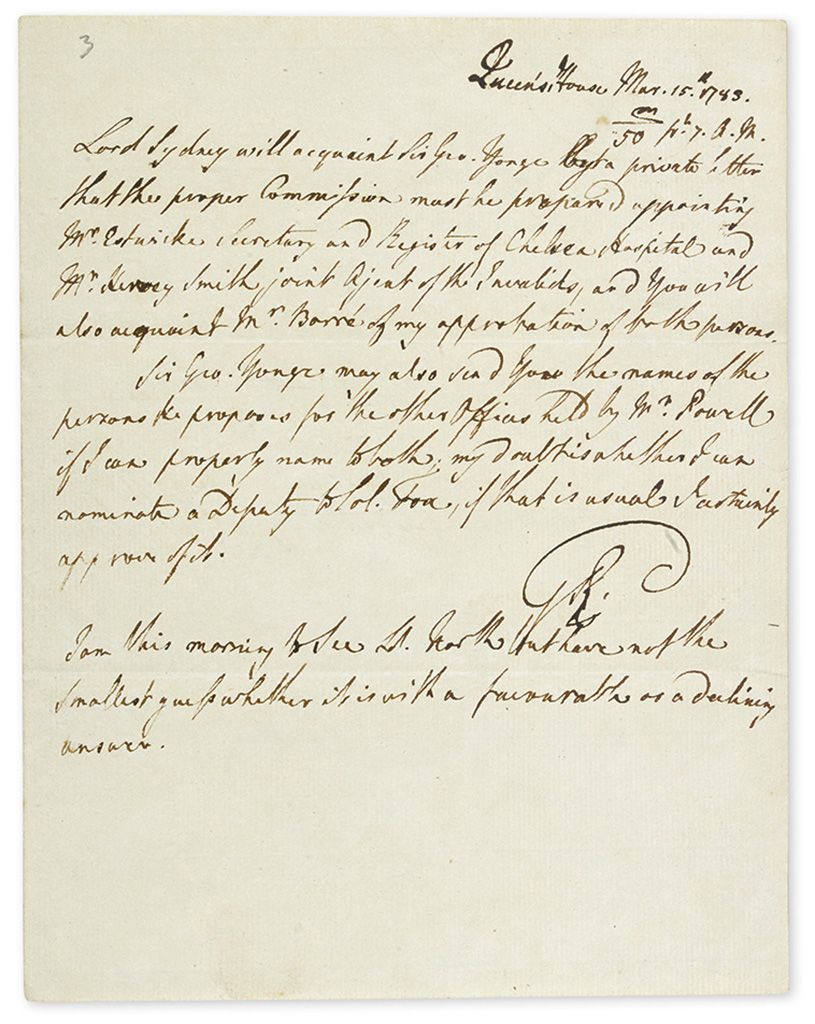 3
Queen's House Mar. 15.th 1783.
m/50 pt. 7. A.M.
Lord Sydney will acquaint Sir Geo. Yonge by a private letter
that the proper Commission must be prepared appointing
Mr. Estwicke Secretary and Register of Chelsea Hospital and
Mr. Hervey Smith joint Agent of the Invalids, and You will
also acquaint Mr. Barré of my approbation of both persons.
Sir Geo. Yonge may also send You the names of the
persons He proposes for the other Offices held by Mr. Powell
if I can properly name to both; my doubt is whether I can
nominate a Deputy to Col. Fox, if that is usual I certainly
approve of it.
GR.
I am this morning to see Ld. North but have not the
smallest guess whether it is with a favourable or a declining
answer.